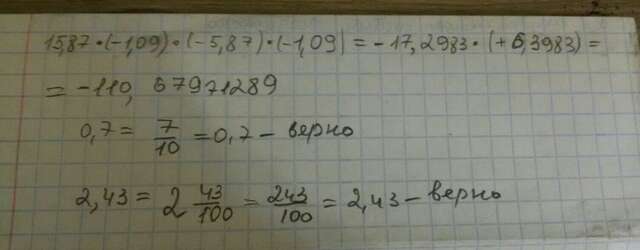 15,87·(-1,09)·(-5,87)·(-1,09) = -17,2983·(+6,3983) =
= -110,67971289
0,7 = 7/10 = 0,7 - верно
2,43 = 2 43/100 = 243/100 = 2,43 - верно